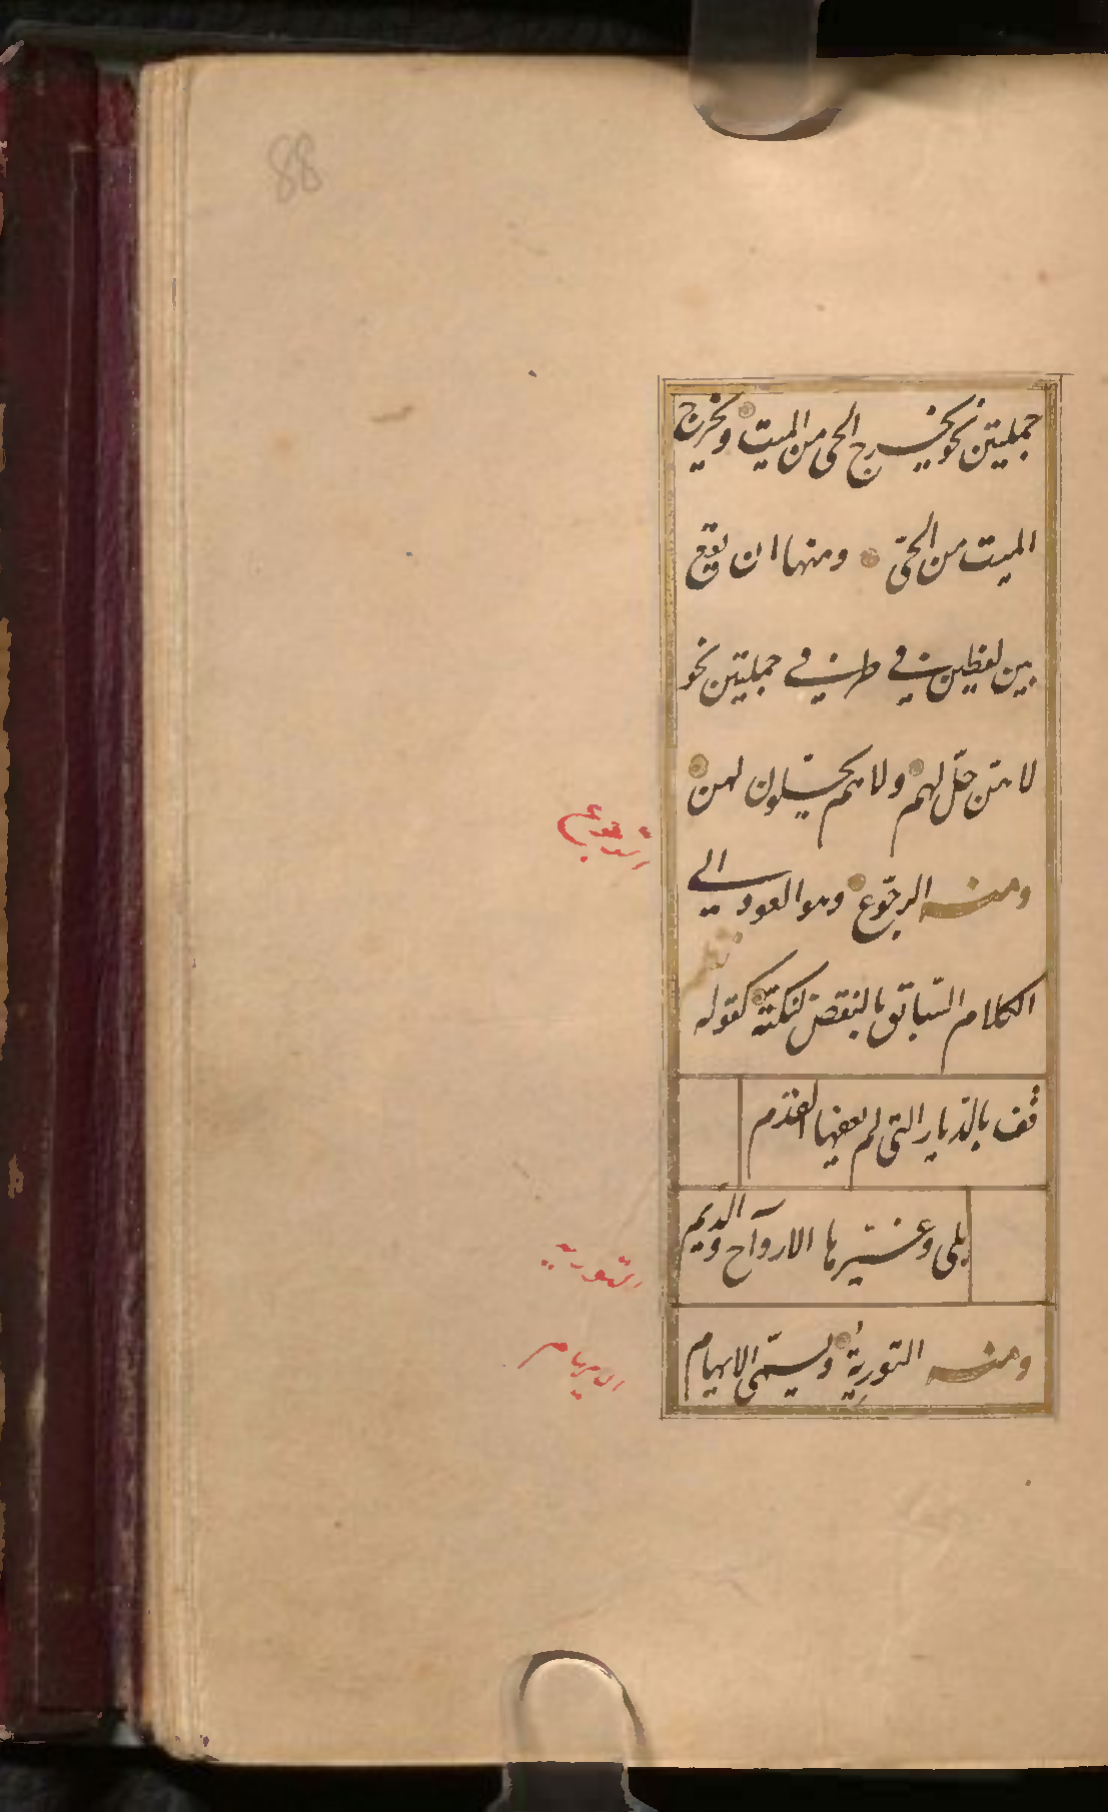 88
جملتين نحو يخرج الحى من الميت ويخرج
الميت من الحىّ ومنها ان يقع
بين لفظين فى طرفى جملتين نحو
لا هنّ حلّ لهم ولا هم يحلّون لهن
الرجوع
ومنه الرجوع وهو العود الى
الكلام السّابق بالنقض لنكتة كقوله
قف بالدّيار التى لم يعفها القدم
بلى وغيّرها الارواح والديم
التوريه
ومنه التورية ويسمّى الايهام
الايهام